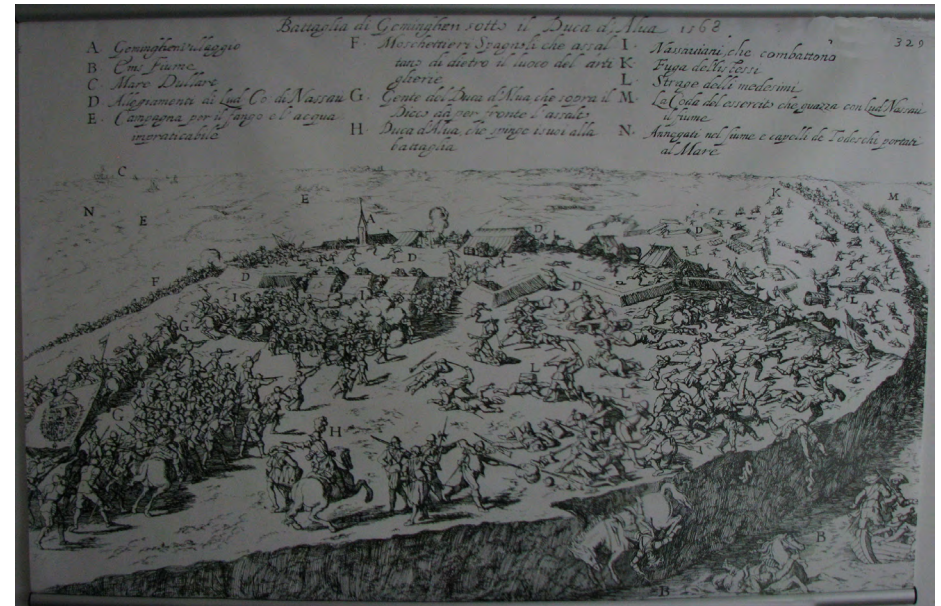 Battaglia di Geminghen sotto il Duca d'Alua 1568
329
A Geminghen villaggio
B Ems fiume
C Mare Dullart
D Allogiamenti di Lud. Co. di Nassau
E Campagna per il fango e l'acqua
impraticabile
F Moschettieri Spagnoli che assal
tano di dietro il luoco del arti
glierie
G Gente del Duca d'Alua, che sopra il
Dicco ad per fronte l'assalto
H Duca d'Alua, che spinge i suoi alla
battaglia
I Nassauiani, che combattono
K Fuga delli stessi
L Strage delli medesimi
M La Coda del essercito che guazza con Lud. Nassau
il fiume
N Annegati nel fiume e capelli de Todeschi portati
al Mare
C
N
E
E
A
K
M
D
D
D
F
D
I
I
D
L
G
L
G
L
H
B
B